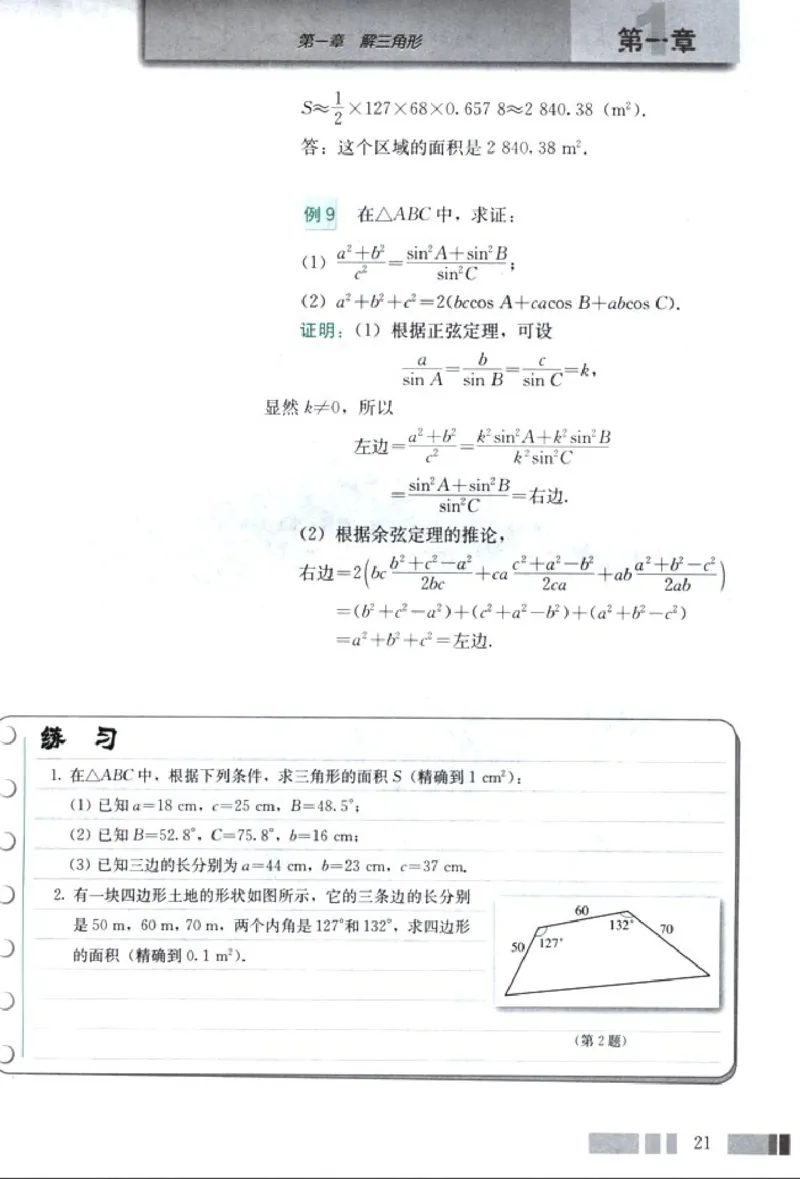 第一章 解三角形
第一章
S≈1/2×127×68×0.657 8≈2 840.38 (m²).
答：这个区域的面积是 2 840.38 m².
例 9 在△ABC 中，求证：
(1) (a²+b²)/c²=(sin²A+sin²B)/sin²C；
(2) a²+b²+c²=2(bccos A+cacos B+abcos C).
证明：(1) 根据正弦定理，可设
a/sin A=b/sin B=c/sin C=k，
显然 k≠0，所以
左边=(a²+b²)/c²=(k²sin²A+k²sin²B)/(k²sin²C)
=(sin²A+sin²B)/sin²C=右边.
(2) 根据余弦定理的推论，
右边=2(bc (b²+c²-a²)/2bc+ca (c²+a²-b²)/2ca+ab (a²+b²-c²)/2ab)
=(b²+c²-a²)+(c²+a²-b²)+(a²+b²-c²)
=a²+b²+c²=左边.
练 习
1. 在△ABC 中，根据下列条件，求三角形的面积 S（精确到 1 cm²）：
(1) 已知 a=18 cm，c=25 cm，B=48.5°；
(2) 已知 B=52.8°，C=75.8°，b=16 cm；
(3) 已知三边的长分别为 a=44 cm，b=23 cm，c=37 cm.
2. 有一块四边形土地的形状如图所示，它的三条边的长分别
是 50 m，60 m，70 m，两个内角是 127°和 132°，求四边形
的面积（精确到 0.1 m²）.
60
132°
70
50
127°
(第 2 题)
21